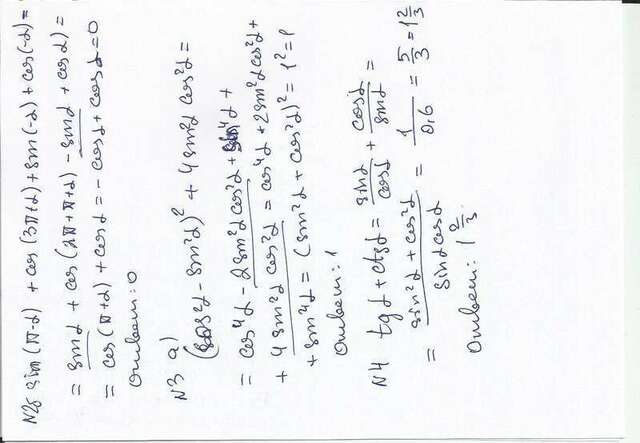 N2б sin(π-α) + cos(3π+α) + sin(-α) + cos(-α) =
= sinα + cos(2π+π+α) - sinα + cosα) =
= cos(π+α) + cosα = - cosα + cosα = 0
Ответ: 0
N3 а)
(cos²α - sin²α)² + 4 sin²α cos²α =
= cos⁴α - 2sin²α cos²α + sin⁴α +
+ 4 sin²α cos²α = cos⁴α + 2 sin²α cos²α +
+ sin⁴α = (sin²α + cos²α)² = 1² = 1
Ответ: 1
N4 tgα + ctgα = sinα/cosα + cosα/sinα =
= sin²α + cos²α/sinα cosα = 1/0,6 = 5/3 = 1 2/3
Ответ: 1 2/3.